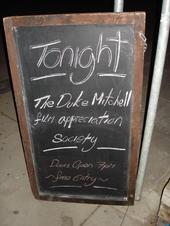 Tonight
The Duke Mitchell
film appreciation
Society
Doors Open 7pm
~ free Entry ~